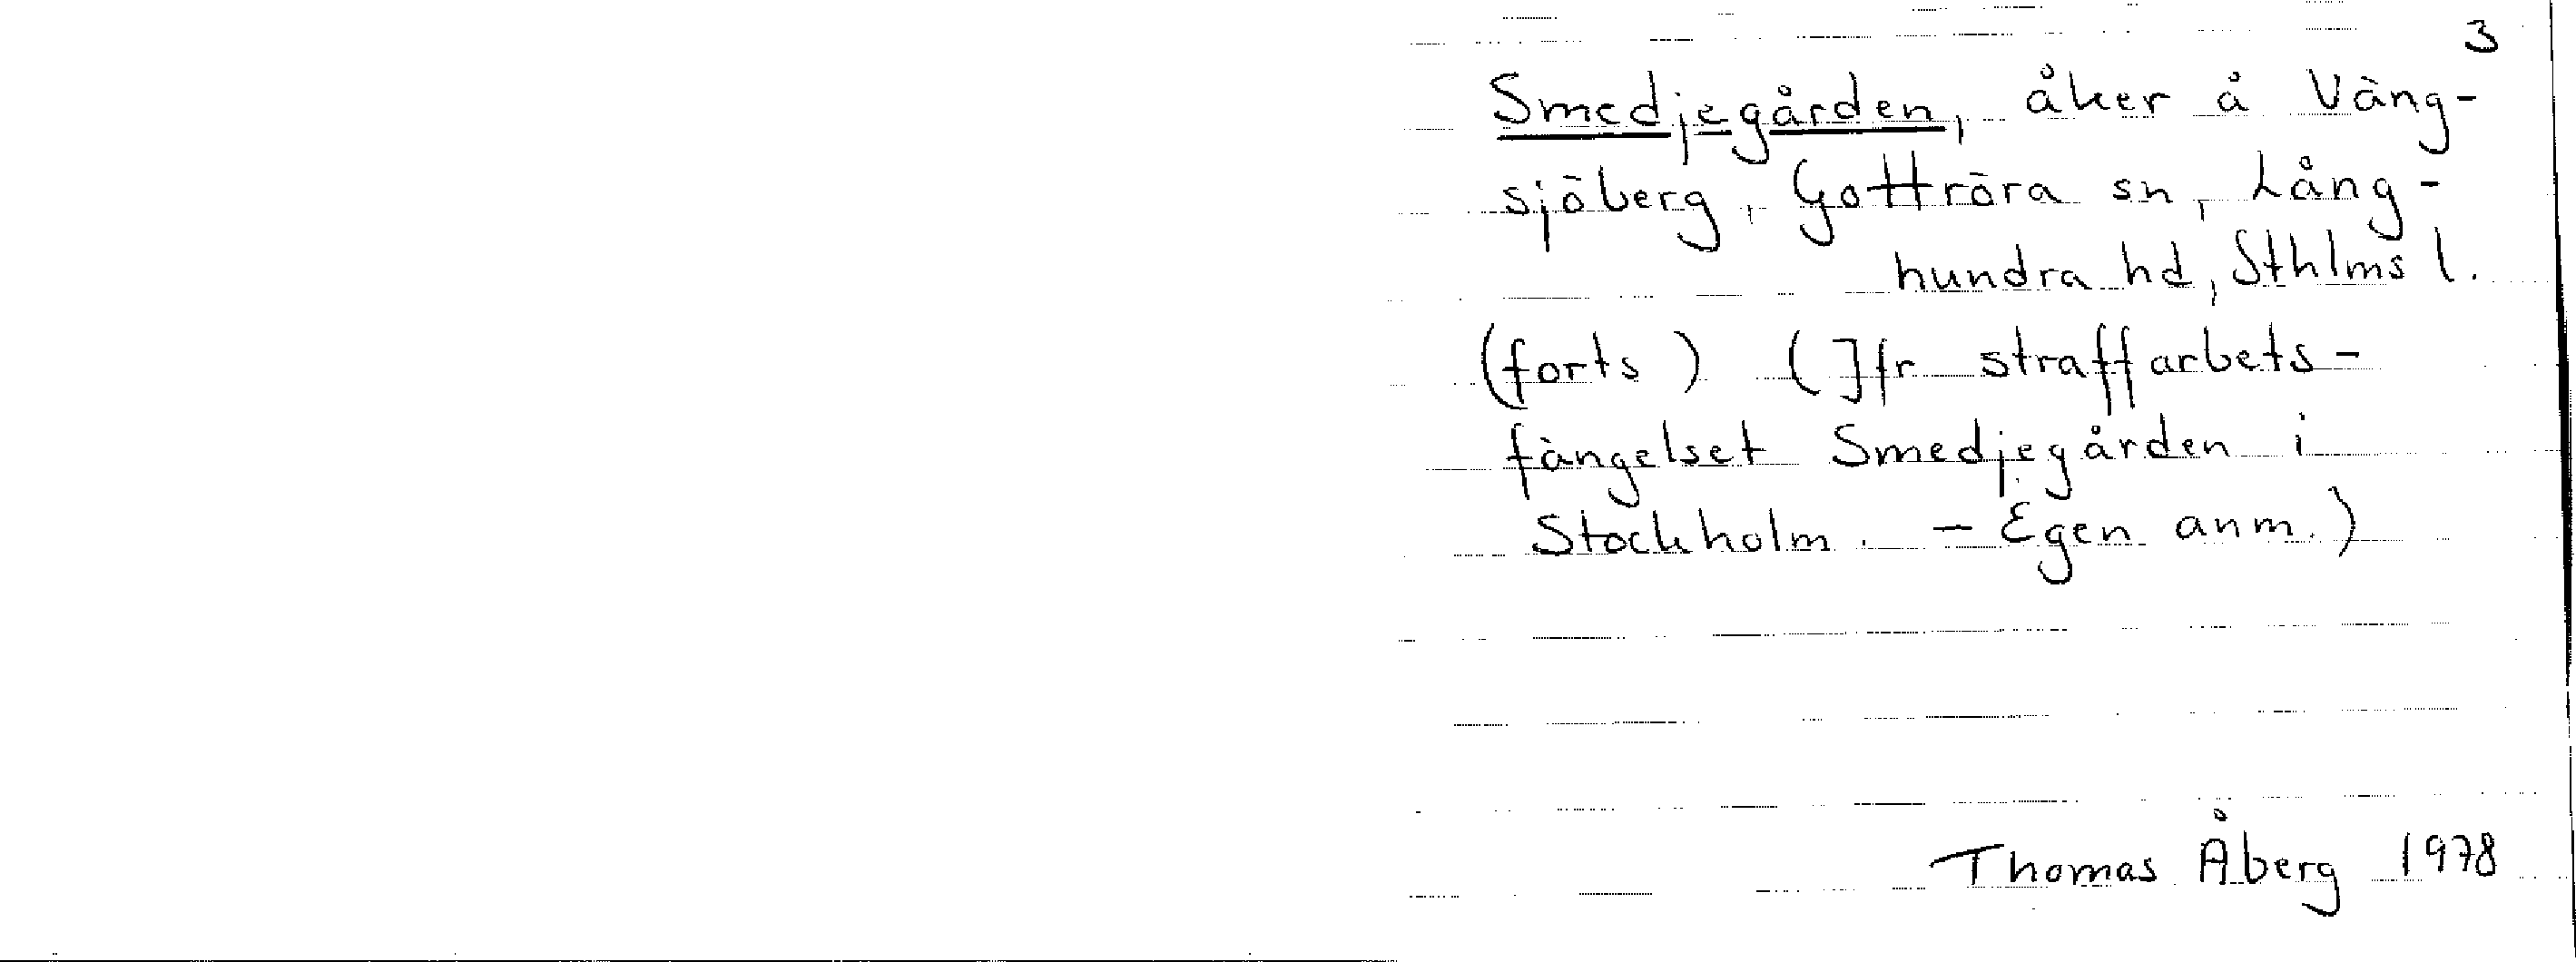 3
Smedjegården, åker å Väng-
sjöberg, Gottröra sn, Lång-
hundra hd, Sthlms l.
(forts) (Jfr straffarbets-
fängelset Smedjegården i
Stockholm. - Egen anm.)
Thomas Åberg 1978